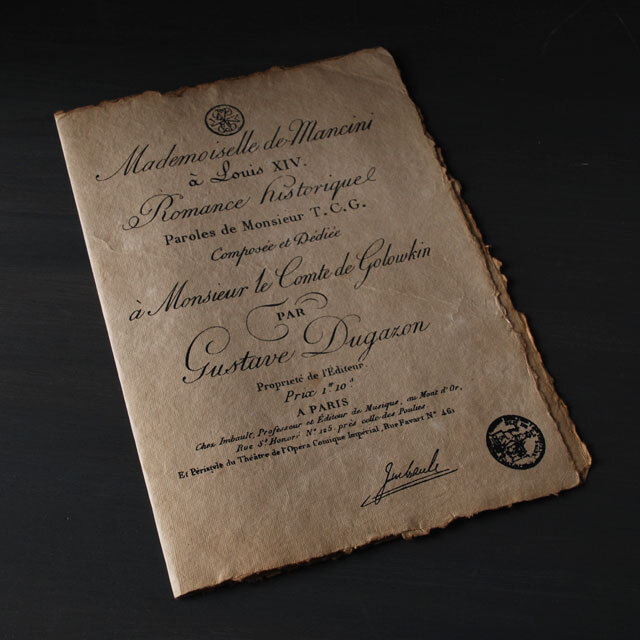 Mademoiselle de Mancini
à Louis XIV.
Romance historique
Paroles de Monsieur T.C.G.
Composée et Dédiée
à Monsieur le Comte de Golowkin
PAR
Gustave Dugazon
Proprieté de l'Éditeur
Prix 1# 10s
A PARIS
Chez Imbault, Professeur et Éditeur de Musique, au Mont d'Or,
Rue St Honoré No 125. près celle des Poulies.
Et Péristyle du Théâtre de l'Opera Comique Impérial, Rue Favart No 461
Imbault